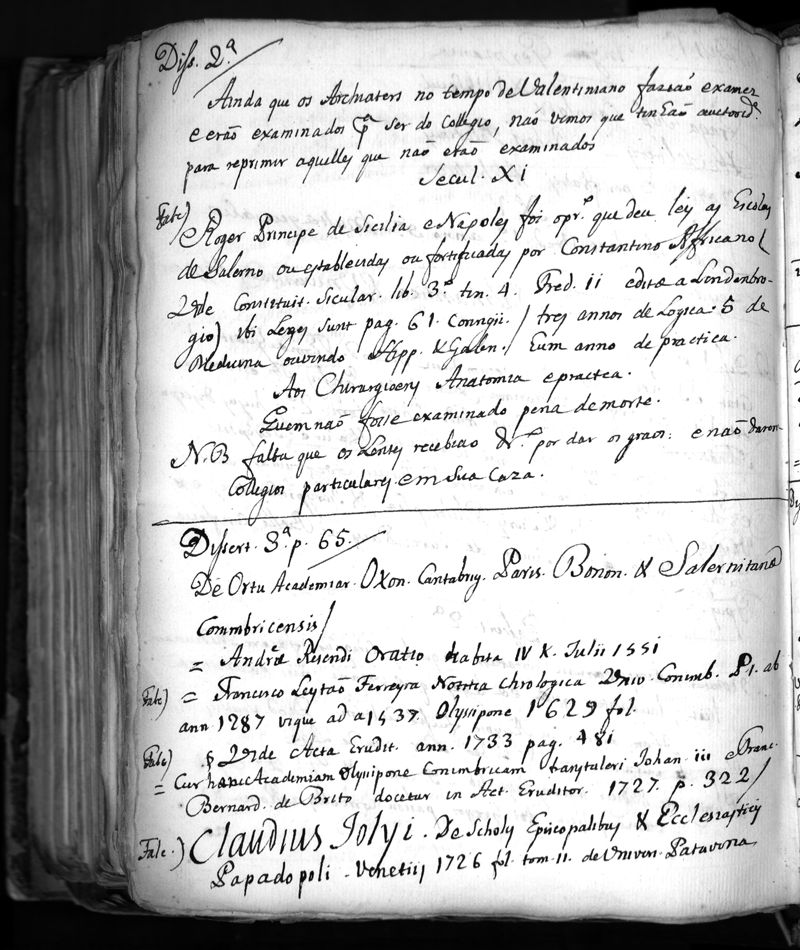 Diss. 2.ª
Ainda que os Archiaters no tempo de Valentiniano faziaõ exames
e eraõ examinados pª ser do Collegio, naõ vimos que tinhaõ auctorid.e
para reprimir aquelles que naõ eraõ examinados
Secul. XI
Falc) Roger Principe de Sicilia e Napoles foi o pr.º que deu ley as Escolas
de Salerno ou establecidas ou fortificadas por Constantino Africano (
Vide Constituit. Sicular. lib. 3.º tit. 4. Fred. II editæ a Lindenbro-
gio) ibi Leges sunt pag. 61. / tres annos de Logica: 5 de
Medicina ouvindo Hipp. & Galen. / hum anno de practica.
Aos Chirurgioens Anatomia e practca.
Quem naõ fosse examinado pena de morte.
N.B falta que os Lentes recebiao dr.º por dar os graos: e naõ
Collegios particulares em sua Caza.
Dissert. 3.ª p. 65.
De Ortu Academiar. Oxon. Cantabrig. Paris. Bonon. & Salernitanæ
Conimbricensis /
= Andræ Resendi Oratio habita IV K. Julii 1551
Falc) = Francisco Leytaõ Ferreyra Notitia Chrologica Univ. Conimb. P. 1. ab
ann 1287 usque ad a 1537. Olyssipone 1629 fol.
Falc) § Vide Acta Erudit. ann. 1733 pag. 481
= Cur hanc Academiam Olysipone Conimbricam Johan. iii e Franc.
Bernard. de Brito docetur in Act. Eruditor. 1727. p. 322 /
Falc.) Claudius Jolyi. De Scholis Episcopalibus & Ecclesiasticis
Papadopoli - Venetiis 1726 fol. tom. II. de Univer. Patavina